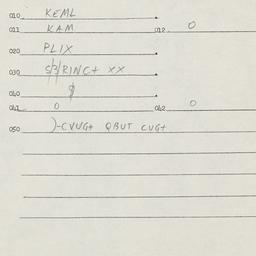 010 KEML
011 KAM 012 0
020 PLIX
030 S/3/RINC+ XX
040 0
041 0 042 0
050 )-CVUG+ QBUT CUG+